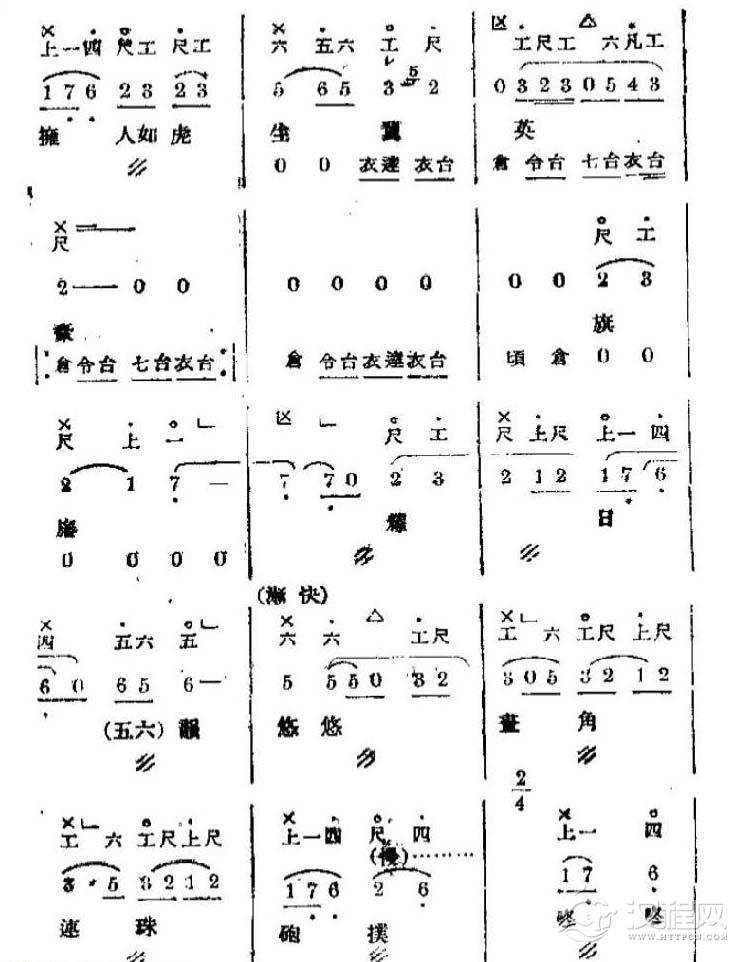 上一四尺工尺工 六五六工尺 工尺工六凡工
176 23 23 5 65 3 5 2 0 3 2 3 0 5 4 3
擁 人如虎 生 翼 英
0 0 衣達衣台 倉 令台 七台衣台
尺 尺工
2 — 0 0 0 0 0 0 0 0 2 3
旗
倉令台 七台衣台 倉 令台衣達衣台 頃 倉 0 0
尺 上一 尺 工 尺 上尺 上一四
2 1 7 — 7 70 2 3 2 12 17 6
耀 日
0 0 0 0
(漸快)
四 五六 五 六 六 工尺 工 六 工尺上尺
6 0 65 6— 5 550 32 305 32 12
(五六)翻 悠悠 畫 角
2/4
工 六 工尺上尺 上一四 尺 四 上一 四
(慢)………
3·5 32 12 176 2 6 17 6
連 珠 砲 撲 咚 咚
汉程网
WWW.HTTPCN.COM